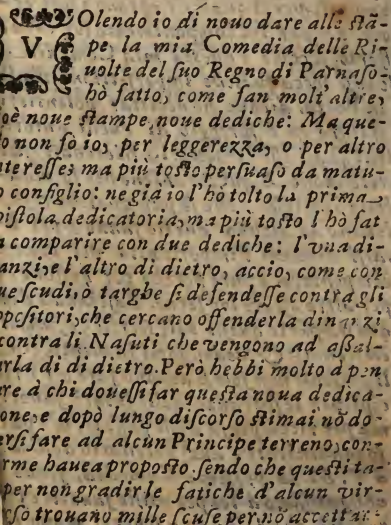 VOlendo io di nouo dare alle stã-
pe la mia Comedia delle Ri-
uolte del suo Regno di Parnaso
hò fatto, come fan molt'altre,
oè noue stampe, noue dediche: Ma que-
o non fò io, per leggerezza, o per altro
nteresse, ma più tosto persuaso da matu-
o consiglio: ne già io l'hò tolto la prima
pistola dedicatoria, ma più tosto l'hò fat
a comparire con due dediche: l'vna di-
anzi, e l'altro di dietro, accio, come con
ue scudi, ò targhe si defendesse contra gli
ppositori, che cercano offenderla dinanzi
contra li Nasuti che vengono ad assal-
rla di di dietro. Però hebbi molto à pen
re à chi douessi far questa noua dedica-
one, e dopò lungo discorso stimai nõ do-
ersi fare ad alcun Principe terreno, con-
rme hauea proposto. sendo che questi ta-
per non gradir le fatiche d'alcun vir-
oso trouano mille scuse per nõ accettar-